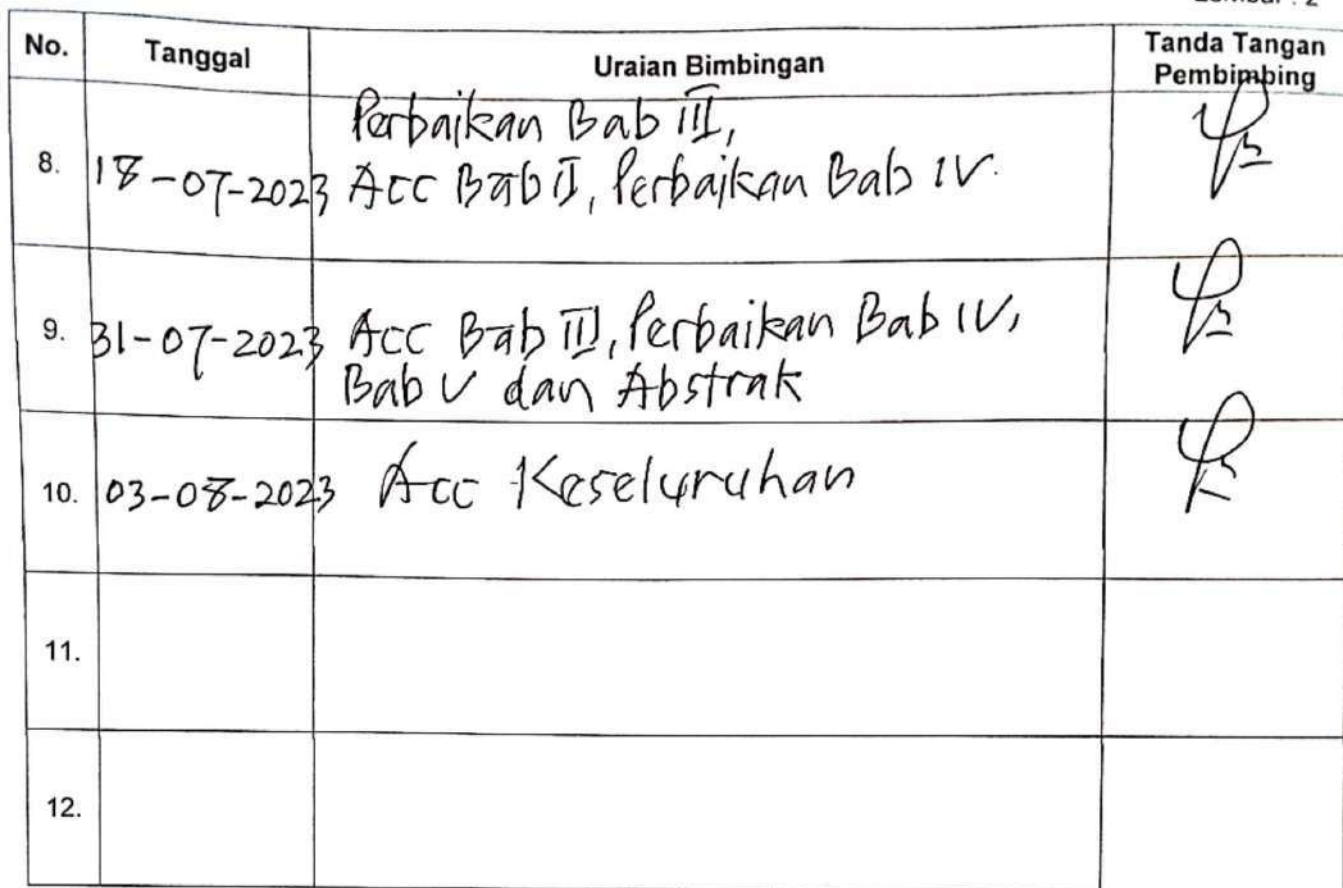 Lembar : 2
No. Tanggal Uraian Bimbingan Tanda Tangan
Pembimbing
Perbaikan Bab III,
8. 18-07-2023 Acc Bab II, Perbaikan Bab IV.
9. 31-07-2023 Acc Bab III, Perbaikan Bab IV,
Bab V dan Abstrak
10. 03-08-2023 Acc Keseluruhan
11.
12.